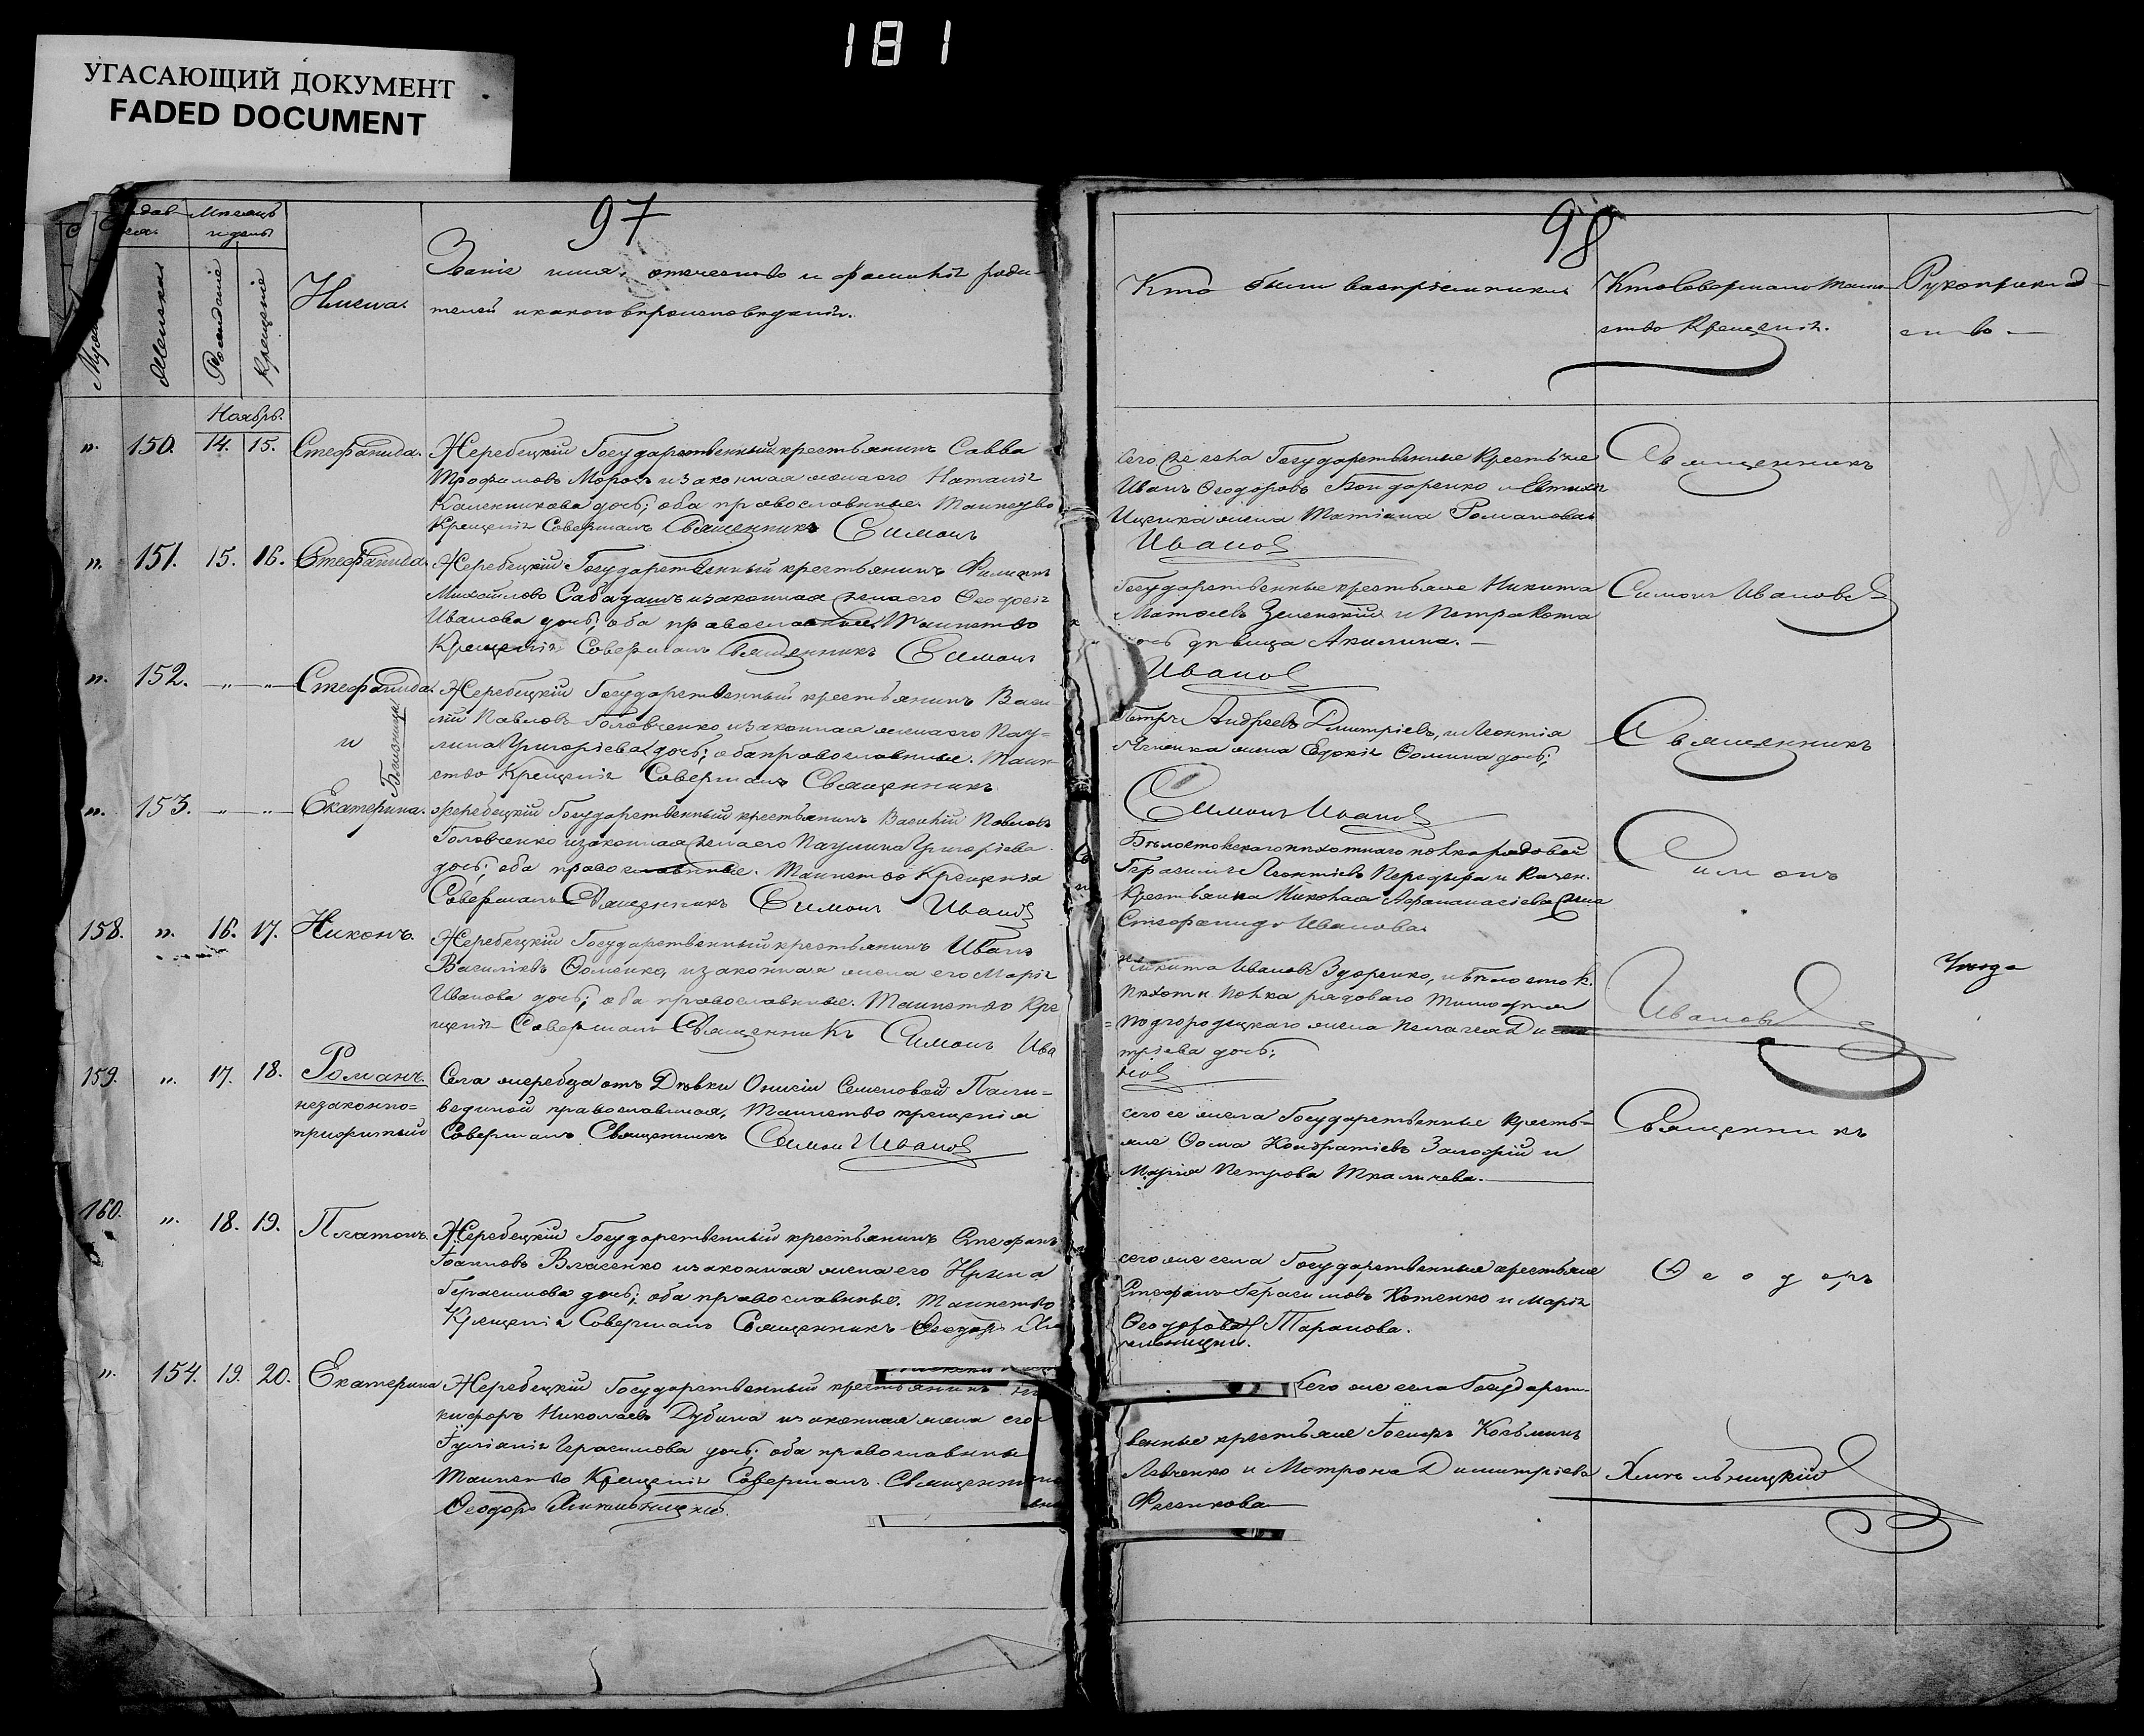 181
УГАСАЮЩИЙ ДОКУМЕНТ
FADED DOCUMENT
97
Мѣсяцъ
и день
Женска
Рожденіе
Крещеніе
Имена.
Званіе имя, отчество и фамилія роди-
телей и какого вѣроисповѣданія.
Ноябрь.
150. 14. 15. Стефанида.
Жеребецкій Государственный крестьянинъ Савва
Трофимовъ Морозъ и законная жена его Наталія
Каленникова дочь; оба православные. Таинство
Крещенія Совершалъ Священникъ Симонъ
151. 15. 16. Стефанида.
Жеребецкій Государственный крестьянинъ Филиппъ
Михайловъ Сабадашъ и законная жена его Ѳеодосія
Иванова дочь; оба православные. Таинство
Крещенія Совершалъ Священникъ Симонъ
152. Стефанида.
и
Близнецы
Жеребецкій Государственный крестьянинъ Васи-
лій Павловъ Головченко и законная жена его Пау-
лина Григоріева дочь; оба православные. Таин-
ство Крещенія Совершалъ Священникъ
153. Екатерина.
Жеребецкій Государственный крестьянинъ Василій Павловъ
Головченко и законная жена его Паулина Григоріева
дочь; оба православные. Таинство Крещенія
Совершалъ Священникъ Симонъ Ивановъ
158. 16. 17. Никонъ.
Жеребецкій Государственный крестьянинъ Иванъ
Васильевъ Ѳоменко, и законная жена его Марія
Иванова дочь; оба православные. Таинство Кре
щенія Совершалъ Священникъ Симонъ Ива
159. 17. 18. Романъ.
незаконно=
прижитый
Села жеребца отъ Дѣвки Онисіи Семеновой
православная, Таинство крещенія
Совершалъ Священникъ Симонъ Ивановъ
160. 18. 19. Платонъ.
Жеребецкій Государственный крестьянинъ Стефанъ
Іоанновъ Власенко и законная жена его Ирина
Герасимова дочь; оба православные. Таинство
Крещенія Совершалъ Священникъ Ѳеодоръ Хм
154. 19. 20. Екатерина
Жеребецкій Государственный крестьянинъ Ни
кифоръ Николаевъ Дубина и законная жена его
Іуліанія Герасимова дочь; оба православны
Таинство Крещенія Совершалъ Священни
Ѳеодоръ Хмельницкій.
98
Кто были воспріемники
Кто Совершалъ Таин-
ство Крещенія.
Рукоприклад-
ство
Сего же села Государственные Крестьяне
Иванъ Ѳеодоровъ Бондаренко и Евтихія
Ищенка жена Татіана Романова
Ивановъ
Священникъ
Государственные крестьяне Никита
Матѳеевъ Зеленскій и Петра Кота
дочь дѣвица Акилина.
Ивановъ
Симонъ Ивановъ
Петръ Андреевъ Димитріевъ, и Леонтія
жена Евдокія Ѳомина дочь;
Симонъ Ивановъ
Священникъ
Бѣлостокскаго пѣхотнаго полка рядовой
Герасимъ Леонтіевъ Передыра и
Крестьянка Николая Аѳанасіева жена
Стефанида Иванова
Симонъ
Никита Ивановъ Здоренко, и Бѣлосток.
Пѣхотн. Полка рядоваго Тимофея
Подгородецкаго жена Пелагея Дими
тріева дочь;
новъ
Ивановъ
сего же села Государственные кресть-
яне Ѳома Кондратіевъ и
Марія Петрова Ткаличева.
Священникъ
сего же села Государственные крестьяне
Стефанъ Герасимовъ Котенко и Марія
Ѳеодорова Таранова.
мельницкій.
Ѳеодоръ
Сего же села Государст-
венные крестьяне Іосифъ Козьминъ
Левченко и Матрона Димитріева
Фесенкова
Хмельницкій